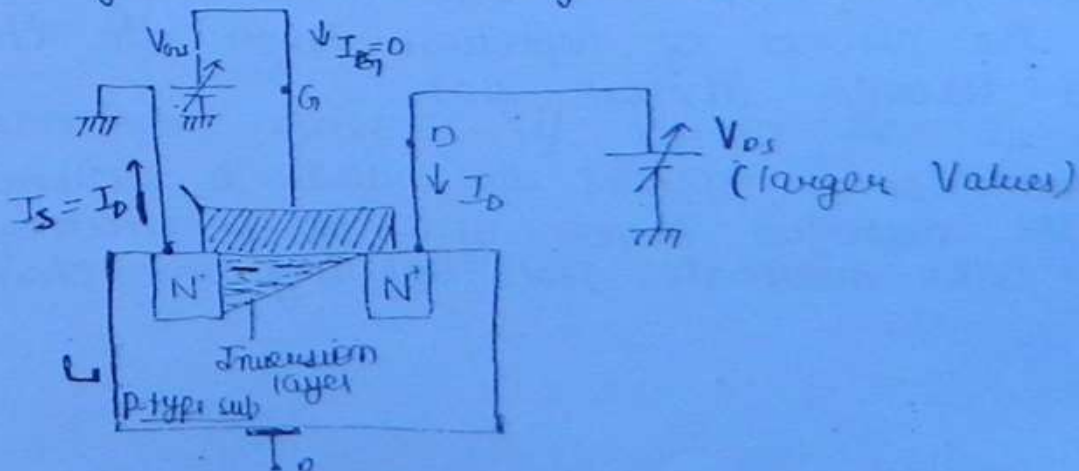 V_GS
↓ I_G=0
G
D
V_DS
(larger Values)
↓ I_D
I_S = I_D
N⁺
N⁺
Inversion
layer
P-type sub